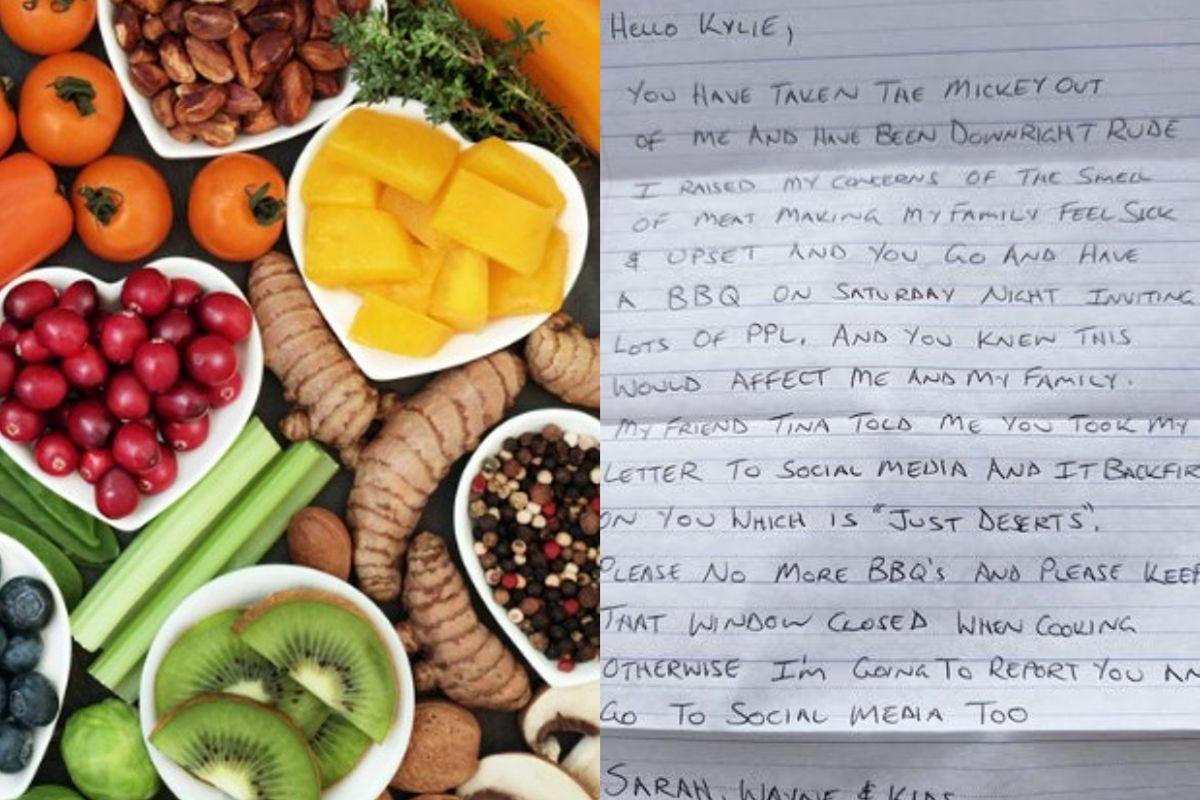 HELLO KYLIE,
YOU HAVE TAKEN THE MICKEY OUT
OF ME AND HAVE BEEN DOWNRIGHT RUDE
I RAISED MY CONCERNS OF THE SMELL
OF MEAT MAKING MY FAMILY FEEL SICK
& UPSET AND YOU GO AND HAVE
A BBQ ON SATURDAY NIGHT INVITING
LOTS OF PPL, AND YOU KNEW THIS
WOULD AFFECT ME AND MY FAMILY.
MY FRIEND TINA TOLD ME YOU TOOK MY
LETTER TO SOCIAL MEDIA AND IT BACKFIR
ON YOU WHICH IS "JUST DESERTS".
PLEASE NO MORE BBQ'S AND PLEASE KEEP
THAT WINDOW CLOSED WHEN COOKING
OTHERWISE I'm GOING TO REPORT YOU AN
GO TO SOCIAL MEDIA TOO
SARAH, WAYNE & KIDS